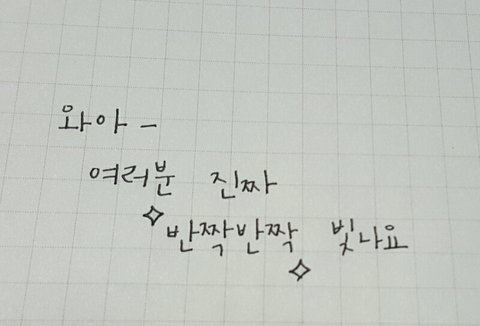 와아 -
여러분 진짜
✧반짝반짝✧ 빛나요